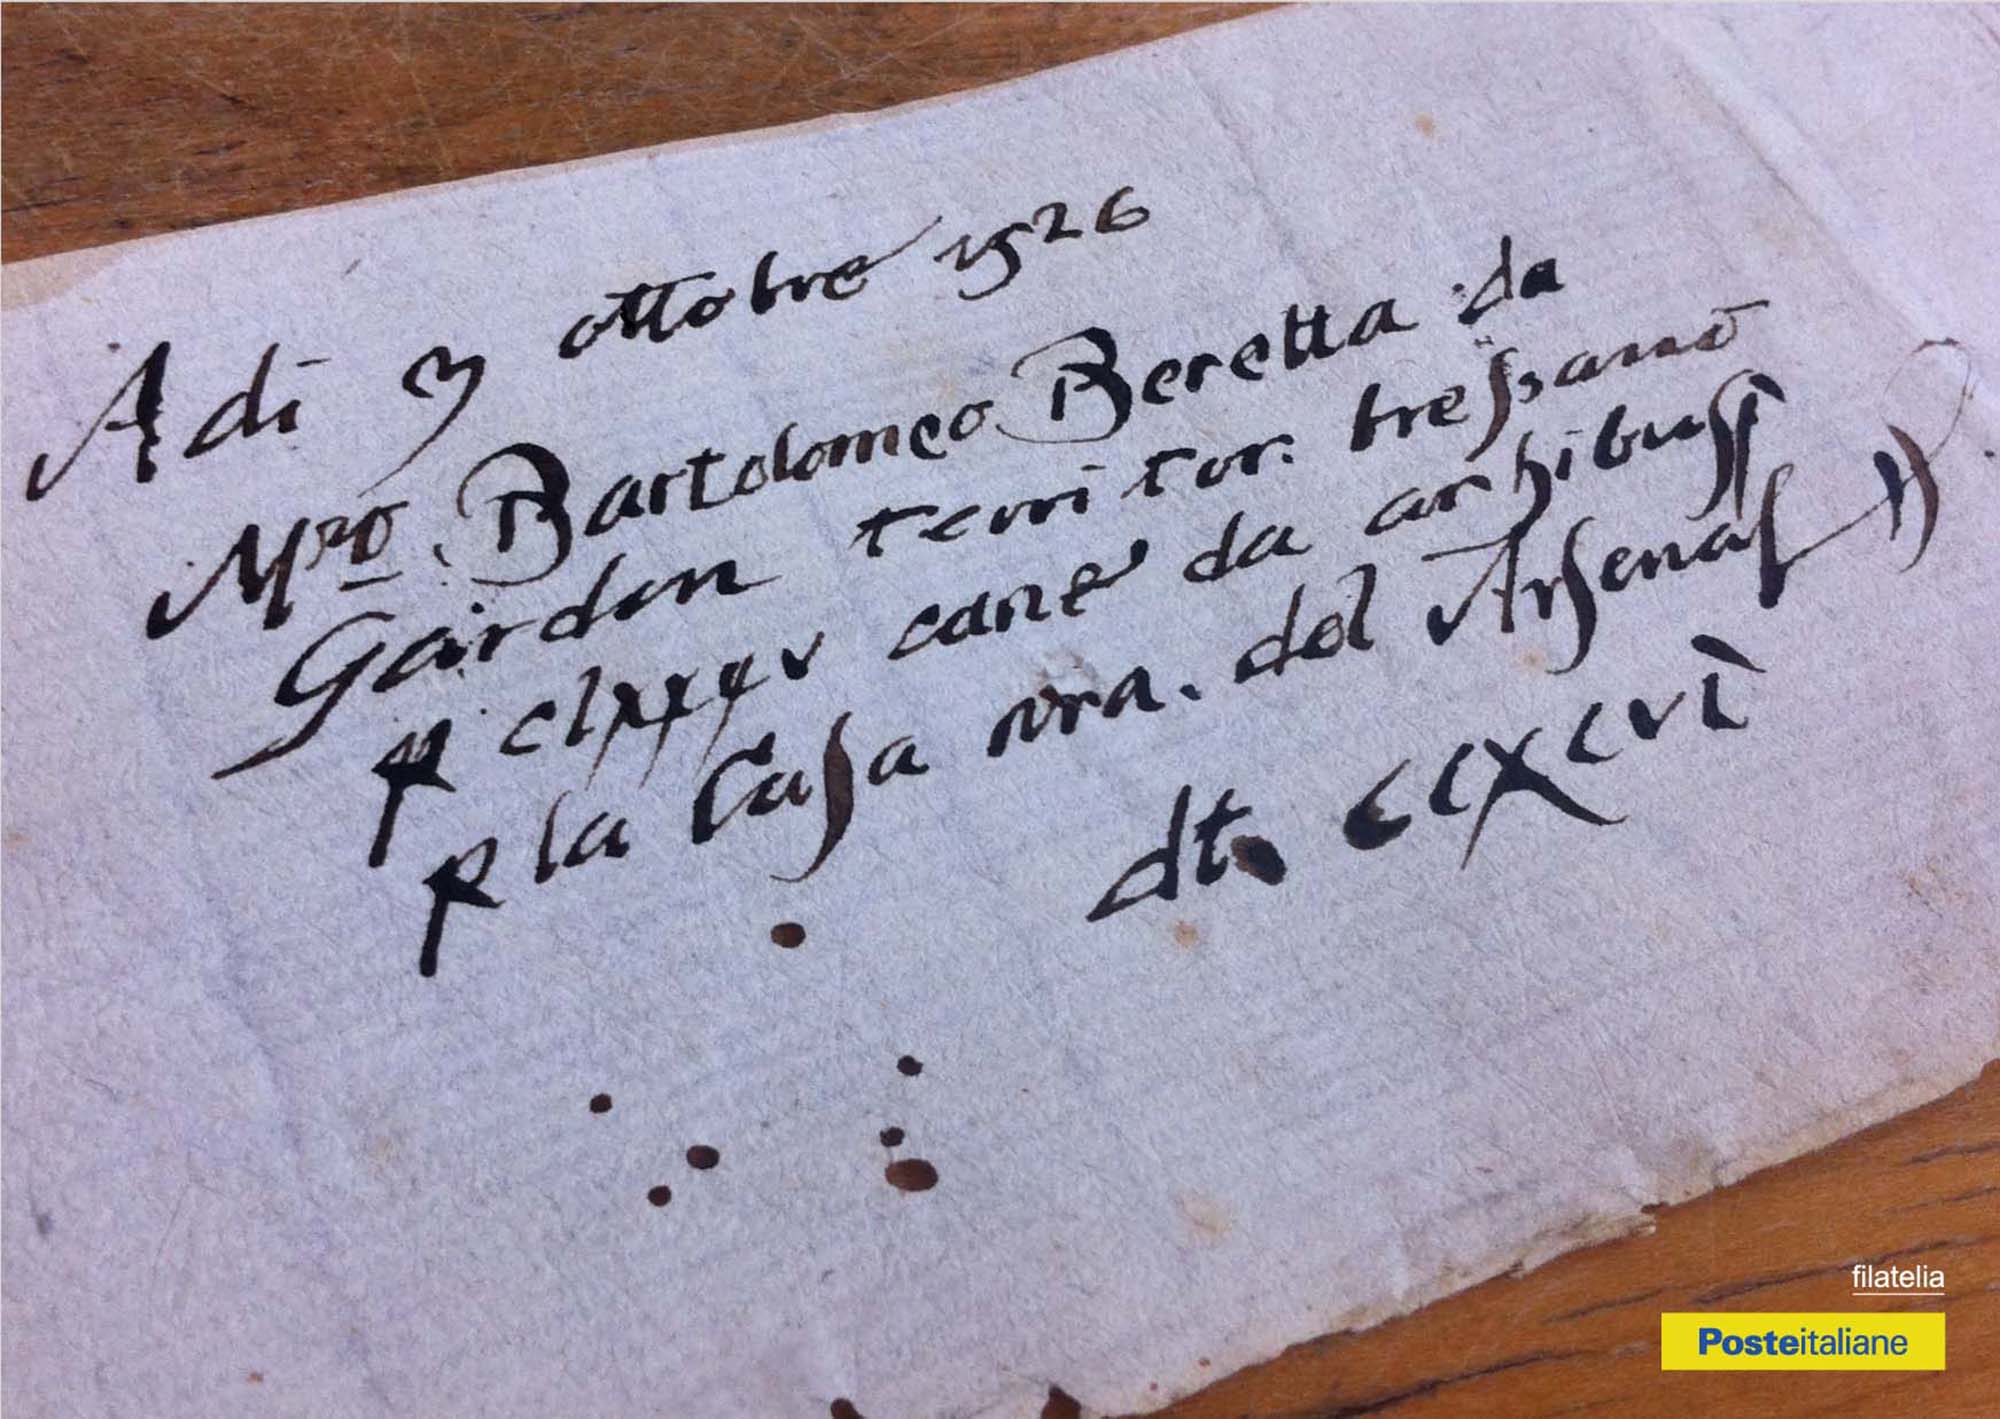 Adi 3 ottobre 1526
Mro. Bartolomeo Beretta da
Gardon territor: bressano
p clxxxv cane da archibussi
p la Casa nra. del Arsenal
dt. ccxcvi
filatelia
Posteitaliane